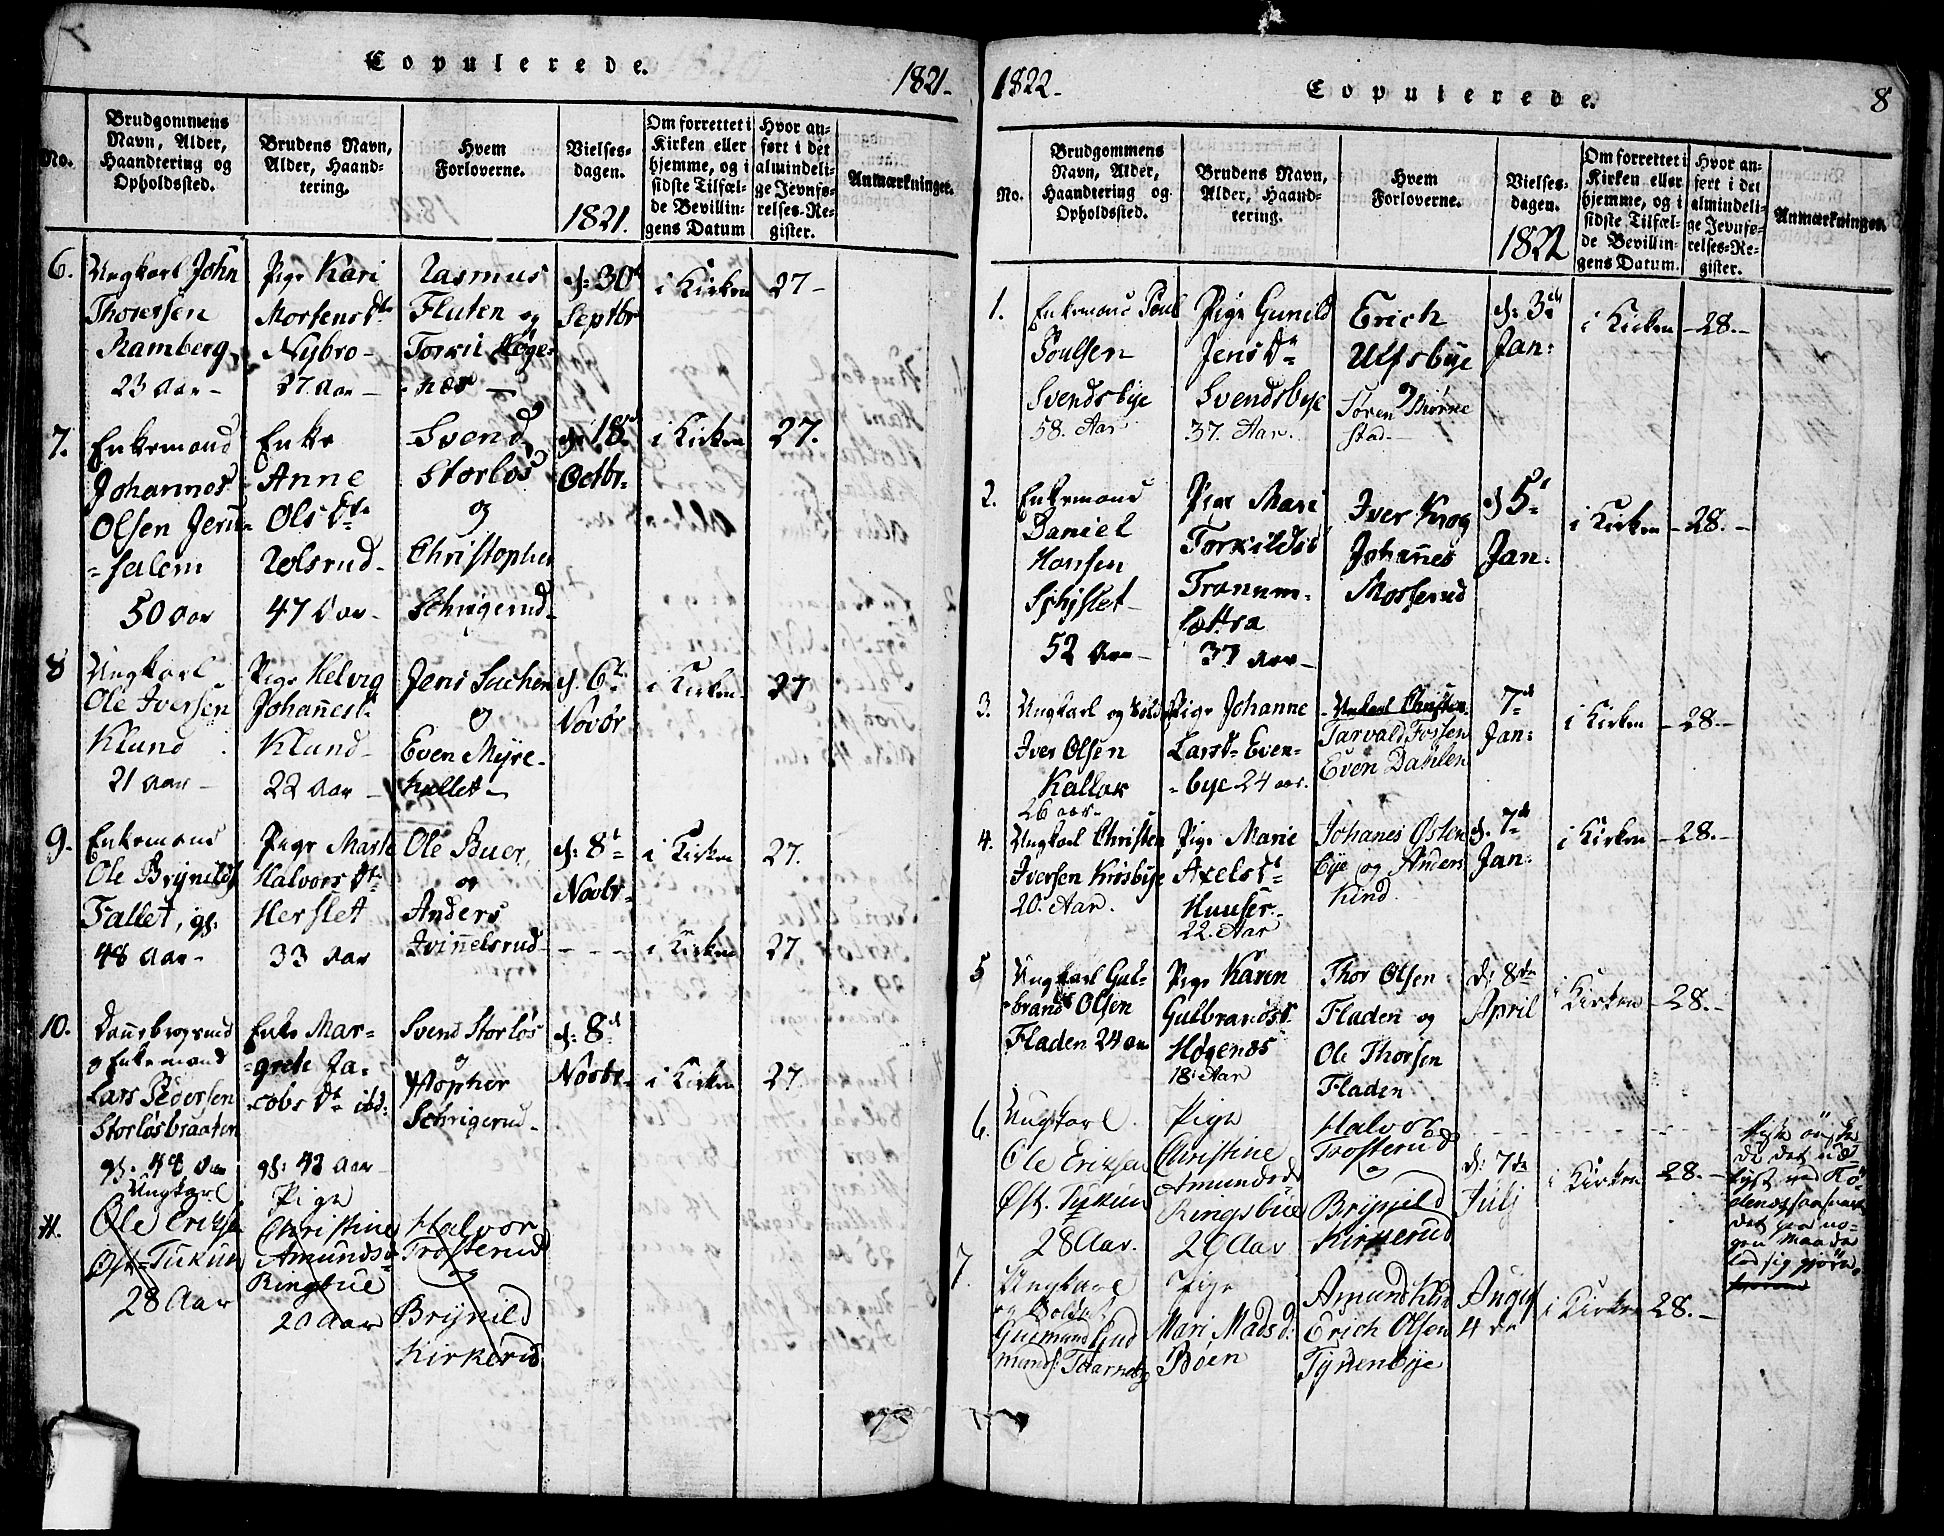 Copulerede.
1821.
No.
Brudgommens Navn, Alder, Haandtering og Opholdssted.
Brudens Navn, Alder, Haandtering.
Hvem Forloverne.
Vielsesdagen.
1821.
Om forrettet i Kirken eller hjemme, og i sidste Tilfælde Bevillingens Datum
Hvor anført i det almindelige Jevnførelses-Register.
Anmærkninger.
6.
Ungkarl John
Thoresen
Ramberg,
23 Aar -
Pige Kari
Mortensdtr
Nybro -
27 Aar -
Rasmus
Fluten og
Torkil Høge-
næs -
d: 30t
Septbr
i Kirken
27 -
7.
Enkemand
Johannes
Olsen Jeru-
=salem
50 Aar
Enke
Anne
Olsdtr
Rolsrud -
47 Aar -
Svend
Storløs
og
Christopher
Schrigerud -
d: 18d
Octbr -
i Kirken
27.
8
Ungkarl
Ole Iversen
Klund
21 Aar -
Pige Helvig
Johannesd.
Klund -
22 Aar -
Jens Suchen
og
Even Myre-
hullet -
d. 6t
Novbr
i Kirken
27
9.
Enkemand
Ole Brynilds
Fallet, gl.
48 Aar -
Pige Marte
Halvorsdtr
Herslet
33 Aar
Ole Buer,
og
Anders
Ivinnelsrud -
d: 8t
Novbr -
i Kirken
27.
- - -
i Kirken
27
10.
Dannebrogsmand
og Enkemand
Lars Pedersen
Storløsbraaten
gl. 44 Aar
Enke Mar-
grete Ja-
cobsdtr ibd:
gl: 42 Aar
Svend Storløs
og
Stopher
Schrigerud -
d: 8d
Novbr -
i Kirken
27.
11.
Ungkarl
Ole Eriksen
Øst-Tukun
28 Aar
Pige
Christine
Amundsd
Ringsbue
20 Aar
Halvor
Trosterud
og
Brynild
Kirkerud
1822 -
Copulerede.
8
No.
Brudgommens Navn, Alder, Haandtering og Opholdssted.
Brudens Navn, Alder, Haandtering.
Hvem Forloverne.
Vielsesdagen.
1822
Om forrettet i Kirken eller hjemme, og i sidste Tilfælde Bevillingens Datum.
Hvor anført i det almindelige Jevnførelses-Register.
Anmærkninger.
1.
Enkemand Poul
Poulsen
Svendsbye
58. Aar
Pige Gunild
Jensdtr
Svendsbye
37. Aar.
Erich
Ulfsbye
og
Søren Biørne
stad -
d: 3die
Jan:
i Kirken
- 28. -
2.
Enkemand
Daniel
Hansen
Schislet
52 Aar -
Pige Mari
Torkildsd
Tranum-
sættra
37 Aar -
Iver Krog
Johannes
Mosserud
d 5t
Jan:
i Kirken
- 28. -
3.
Ungkarl og
Iver Olsen
Kallak
26 aar -
Pige Johanne
Larsd Even-
= bye 24 aar.
Tarvald Fossen
Even Dahlen
7d
Jan:
i Kirken
- 28. -
4.
Ungkarl Christen
Iversen Krosbye
20. Aar.
Pige Marie
Axelsd
Huuser
22. Aar
Johanes Østen
bye og Anders
Kind
d. 7d
Jan:
i Kirken
- 28. -
5
Ungkarl Gul-
brand Olsen
Fladen 24 aar
Pige Karen
Gulbrandsd.
Høgenæs
18 Aar
Thor Olsen
Fladen og
Ole Thorsen
Fladen
d: 8de
April
i Kirken
- 28. -
6.
Ungkarl
Ole Eriksen
Øst. Tukun
28 Aar.
Pige
Christine
Amundsd
Ringsbue
20 Aar
Halvor
Trosterud
og
Brynild
Kirkerud
d: 7de
Julj
i Kirken
28. -
det paa no-
gen Maade
lod sig gjøre.
7.
Ungkarl
og Soldat
Gudmund Gud
munds: Taarnebye
Pige
Mari Madsd:
Bøen
Amund
Erich Olsen
Tyrienbye
August
4 de
i Kirken
28. -